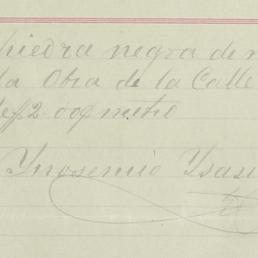 piedra negra de r
la Obra de la Calle
de $2.00 metro
Ynosensio Ysasi